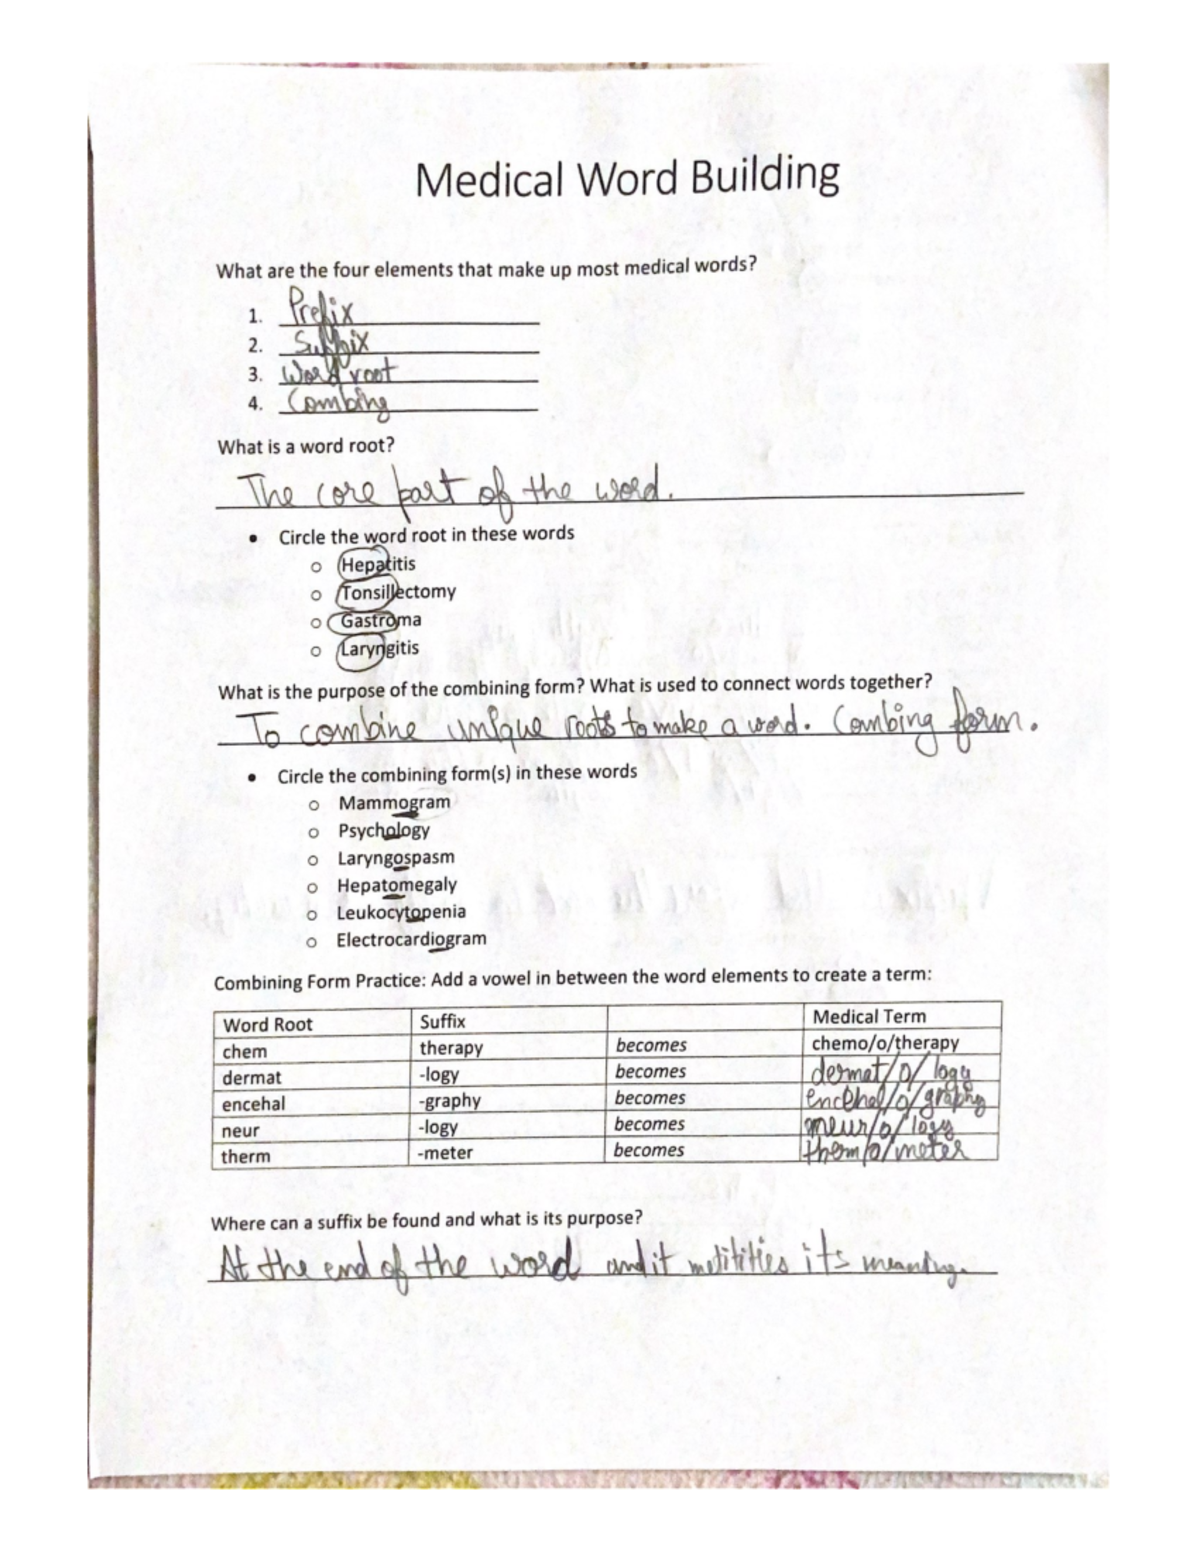 Medical Word Building
What are the four elements that make up most medical words?
1. Prefix
2. Suffix
3. Word root
4. Combing
What is a word root?
The core part of the word.
• Circle the word root in these words
o Hepatitis
o Tonsillectomy
o Gastroma
o Laryngitis
What is the purpose of the combining form? What is used to connect words together?
To combine unique roots to make a word. Combing form.
• Circle the combining form(s) in these words
o Mammogram
o Psychology
o Laryngospasm
o Hepatomegaly
o Leukocytopenia
o Electrocardiogram
Combining Form Practice: Add a vowel in between the word elements to create a term:
Word Root Suffix Medical Term
chem therapy becomes chemo/o/therapy
dermat -logy becomes dermat/o/logy
encehal -graphy becomes encehal/o/graphy
neur -logy becomes neur/o/logy
therm -meter becomes therm/o/meter
Where can a suffix be found and what is its purpose?
At the end of the word and it its meaning.